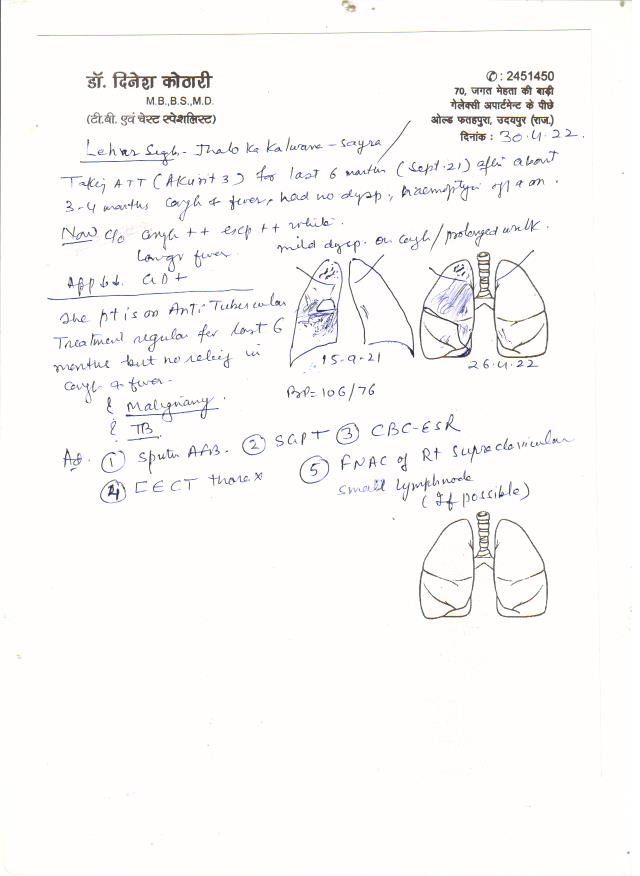 डॉ. दिनेश कोठारी
M.B.,B.S.,M.D.
(टी.बी. एवं चेस्ट स्पेशलिस्ट)
✆ : 2451450
70, जगत मेहता की बाड़ी
गेलेक्सी अपार्टमेन्ट के पीछे
ओल्ड फतहपुरा, उदयपुर (राज.)
दिनांक : 30.4.22.
Lehar Singh - Jhalo Ka Kalwana - Sayra
Taking ATT (AKurit 3) for last 6 months (Sept.21) after about
3-4 months cough & fever, had no dysp, haemoptysis off & on.
Now c/o cough ++ exp ++ white.
Low gr fever. mild dysp. on cough / prolonged walk.
App ↓↓.
The pt is on Anti-Tubercular
Treatment regular for last 6
months but no relief in
cough & fever.
15-9-21
26.4.22
BP= 106/76
? Malignancy.
? TB
Ad. ① Sputum AFB. ② SGPT ③ CBC-ESR
④ CECT thorax ⑤ FNAC of Rt supraclavicular
small lymphnode
(If possible)